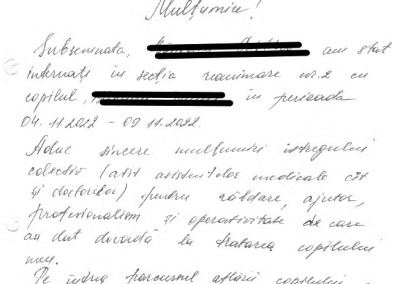 Mulțumire!
Subsemnata, am stat
internați în secția reanimare nr.2 cu
copilul, în perioada
04.11.2022 - 09.11.2022.
Aduc sincere mulțumiri întregului
colectiv (atît asistentelor medicale cît
și doctorilor) pentru răbdare, ajutor,
profesionalism și operativitate de care
au dat dovadă la tratarea copilului
meu.
Pe întreg parcursul aflării copilului